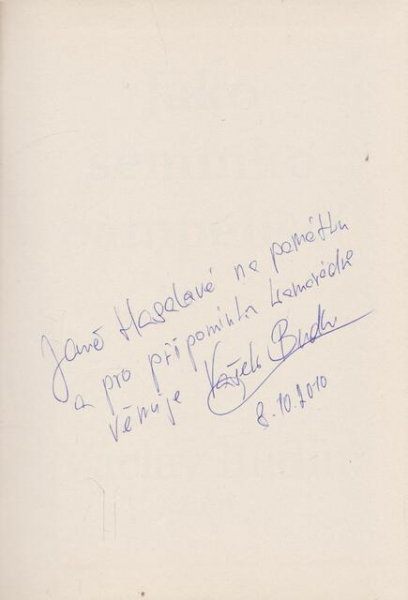 Janě Hasalavé na památku
a pro připomínku kamarádka
věnuje Vašek
8.10.2010